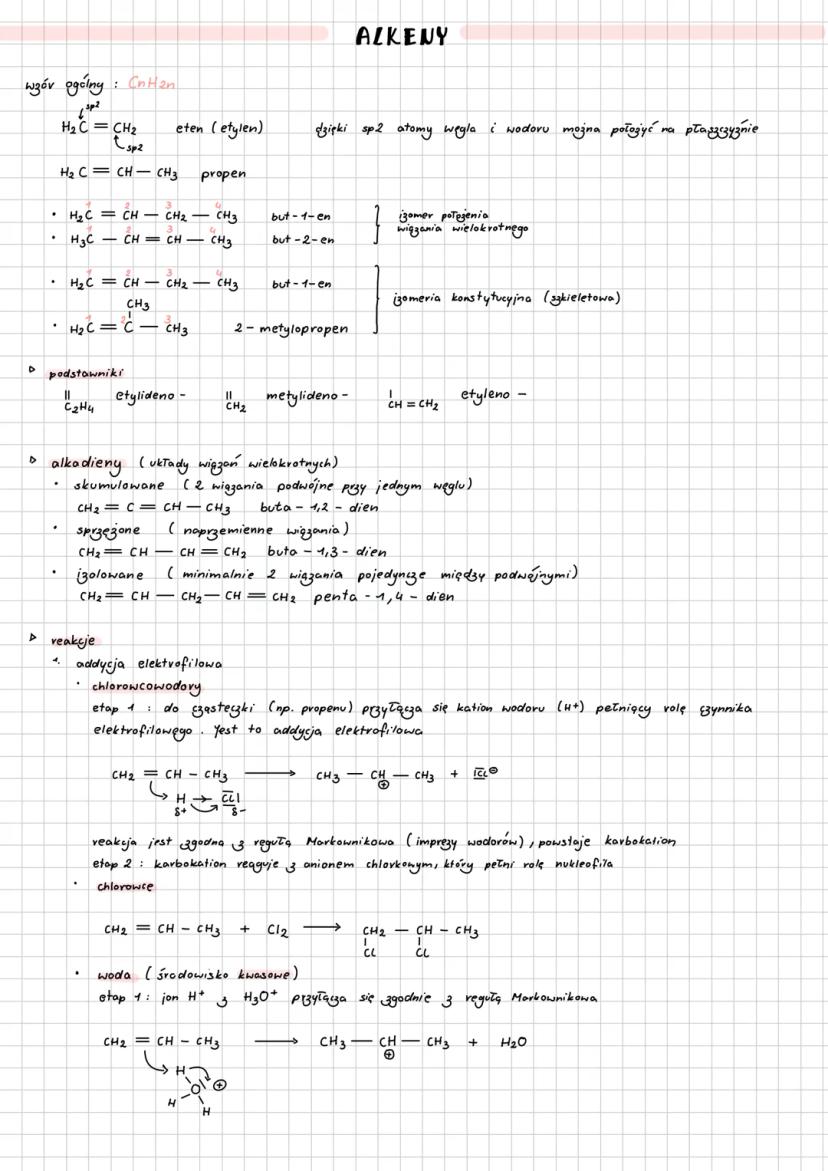 ALKENY
wzór ogólny : CnH2n
sp2
H2C = CH2 eten (etylen) dzięki sp2 atomy węgla i wodoru można położyć na płaszczyźnie
sp2
H2C = CH — CH3 propen
1 2 3 4
• H2C = CH — CH2 — CH3 but-1-en
izomer położenia
1 2 3 4
• H3C — CH = CH — CH3 but-2-en
wiązania wielokrotnego
1 2 3 4
• H2C = CH — CH2 — CH3 but-1-en
izomeria konstytucyjna (szkieletowa)
CH3
1 2 3
• H2C = C — CH3 2-metylopropen
podstawniki
|| etylideno- || metylideno- | etyleno-
C2H4 CH2 CH=CH2
alkadieny (układy wiązań wielokrotnych)
• skumulowane (2 wiązania podwójne przy jednym węglu)
CH2 = C = CH — CH3 buta-1,2-dien
• sprzężone (naprzemienne wiązania)
CH2 = CH — CH = CH2 buta-1,3-dien
• izolowane (minimalnie 2 wiązania pojedyncze między podwójnymi)
CH2 = CH — CH2 — CH = CH2 penta-1,4-dien
reakcje
1. addycja elektrofilowa
• chlorowcowodory
etap 1 : do cząsteczki (np. propenu) przyłącza się kation wodoru (H+) pełniący rolę czynnika
elektrofilowego. Jest to addycja elektrofilowa
CH2 = CH - CH3 → CH3 — CH — CH3 + |Cl⊖
⊕
H → Cl|
δ+ δ-
reakcja jest zgodna z regułą Markownikowa (imprezy wodorów), powstaje karbokation
etap 2 : karbokation reaguje z anionem chlorkowym, który pełni rolę nukleofila
• chlorowce
CH2 = CH - CH3 + Cl2 → CH2 — CH - CH3
| |
Cl Cl
• woda (środowisko kwasowe)
etap 1: jon H+ z H3O+ przyłącza się zgodnie z regułą Markownikowa
CH2 = CH - CH3 → CH3 — CH — CH3 + H2O
⊕
H
O| ⊕
H
H